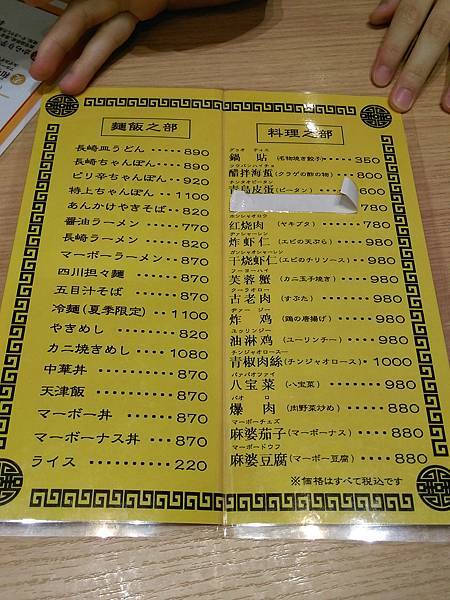 麺飯之部
長崎皿うどん・・・・・890
長崎ちゃんぽん・・・・890
ピリ辛ちゃんぽん・・・920
特上ちゃんぽん・・1100
あんかけやきそば・・820
醤油ラーメン・・・・・770
長崎ラーメン・・・・・820
マーボーラーメン・・870
四川担々麺・・・・・・870
五目汁そば・・・・・・870
冷麺(夏季限定)・・1100
やきめし・・・・・・・・820
カニ焼きめし・・・・1080
中華丼・・・・・・・・・870
天津飯・・・・・・・・・870
マーボー丼・・・・・・870
マーボーナス丼・・・870
ライス・・・・・・・・・220
料理之部
鍋貼(名物焼き餃子)・・・・・350
醋拌海蜇(クラゲの酢の物)・・・800
青島皮蛋(ピータン)・・・・・600
780
ホンシャオロウ
红烧肉(ヤキブタ)・・・・・780
ヂァシャーレン
炸虾仁(エビの天ぷら)・・・・980
ガンシャオシャーレン
干烧虾仁(エビのチリソース)・・980
フーヨーハイ
芙蓉蟹(カニ玉子焼き)・・・・980
クーラオロー
古老肉(すぶた)・・・・・・980
ヂァー ジー
炸 鸡(鶏の唐揚げ)・・・・・980
ユゥリンジー
油淋鸡(ユーリンチー)・・・・980
チンジャオロースー
青椒肉絲(チンジャオロース)・・1000
パァパオツァイ
八宝菜(八宝菜)・・・・・・980
パオ ロ
爆 肉(肉野菜炒め)・・・・・880
マーボーチェズ
麻婆茄子(マーボーナス)・・・・880
マーボードウフ
麻婆豆腐(マーボー豆腐)・・・・880
※価格はすべて税込です